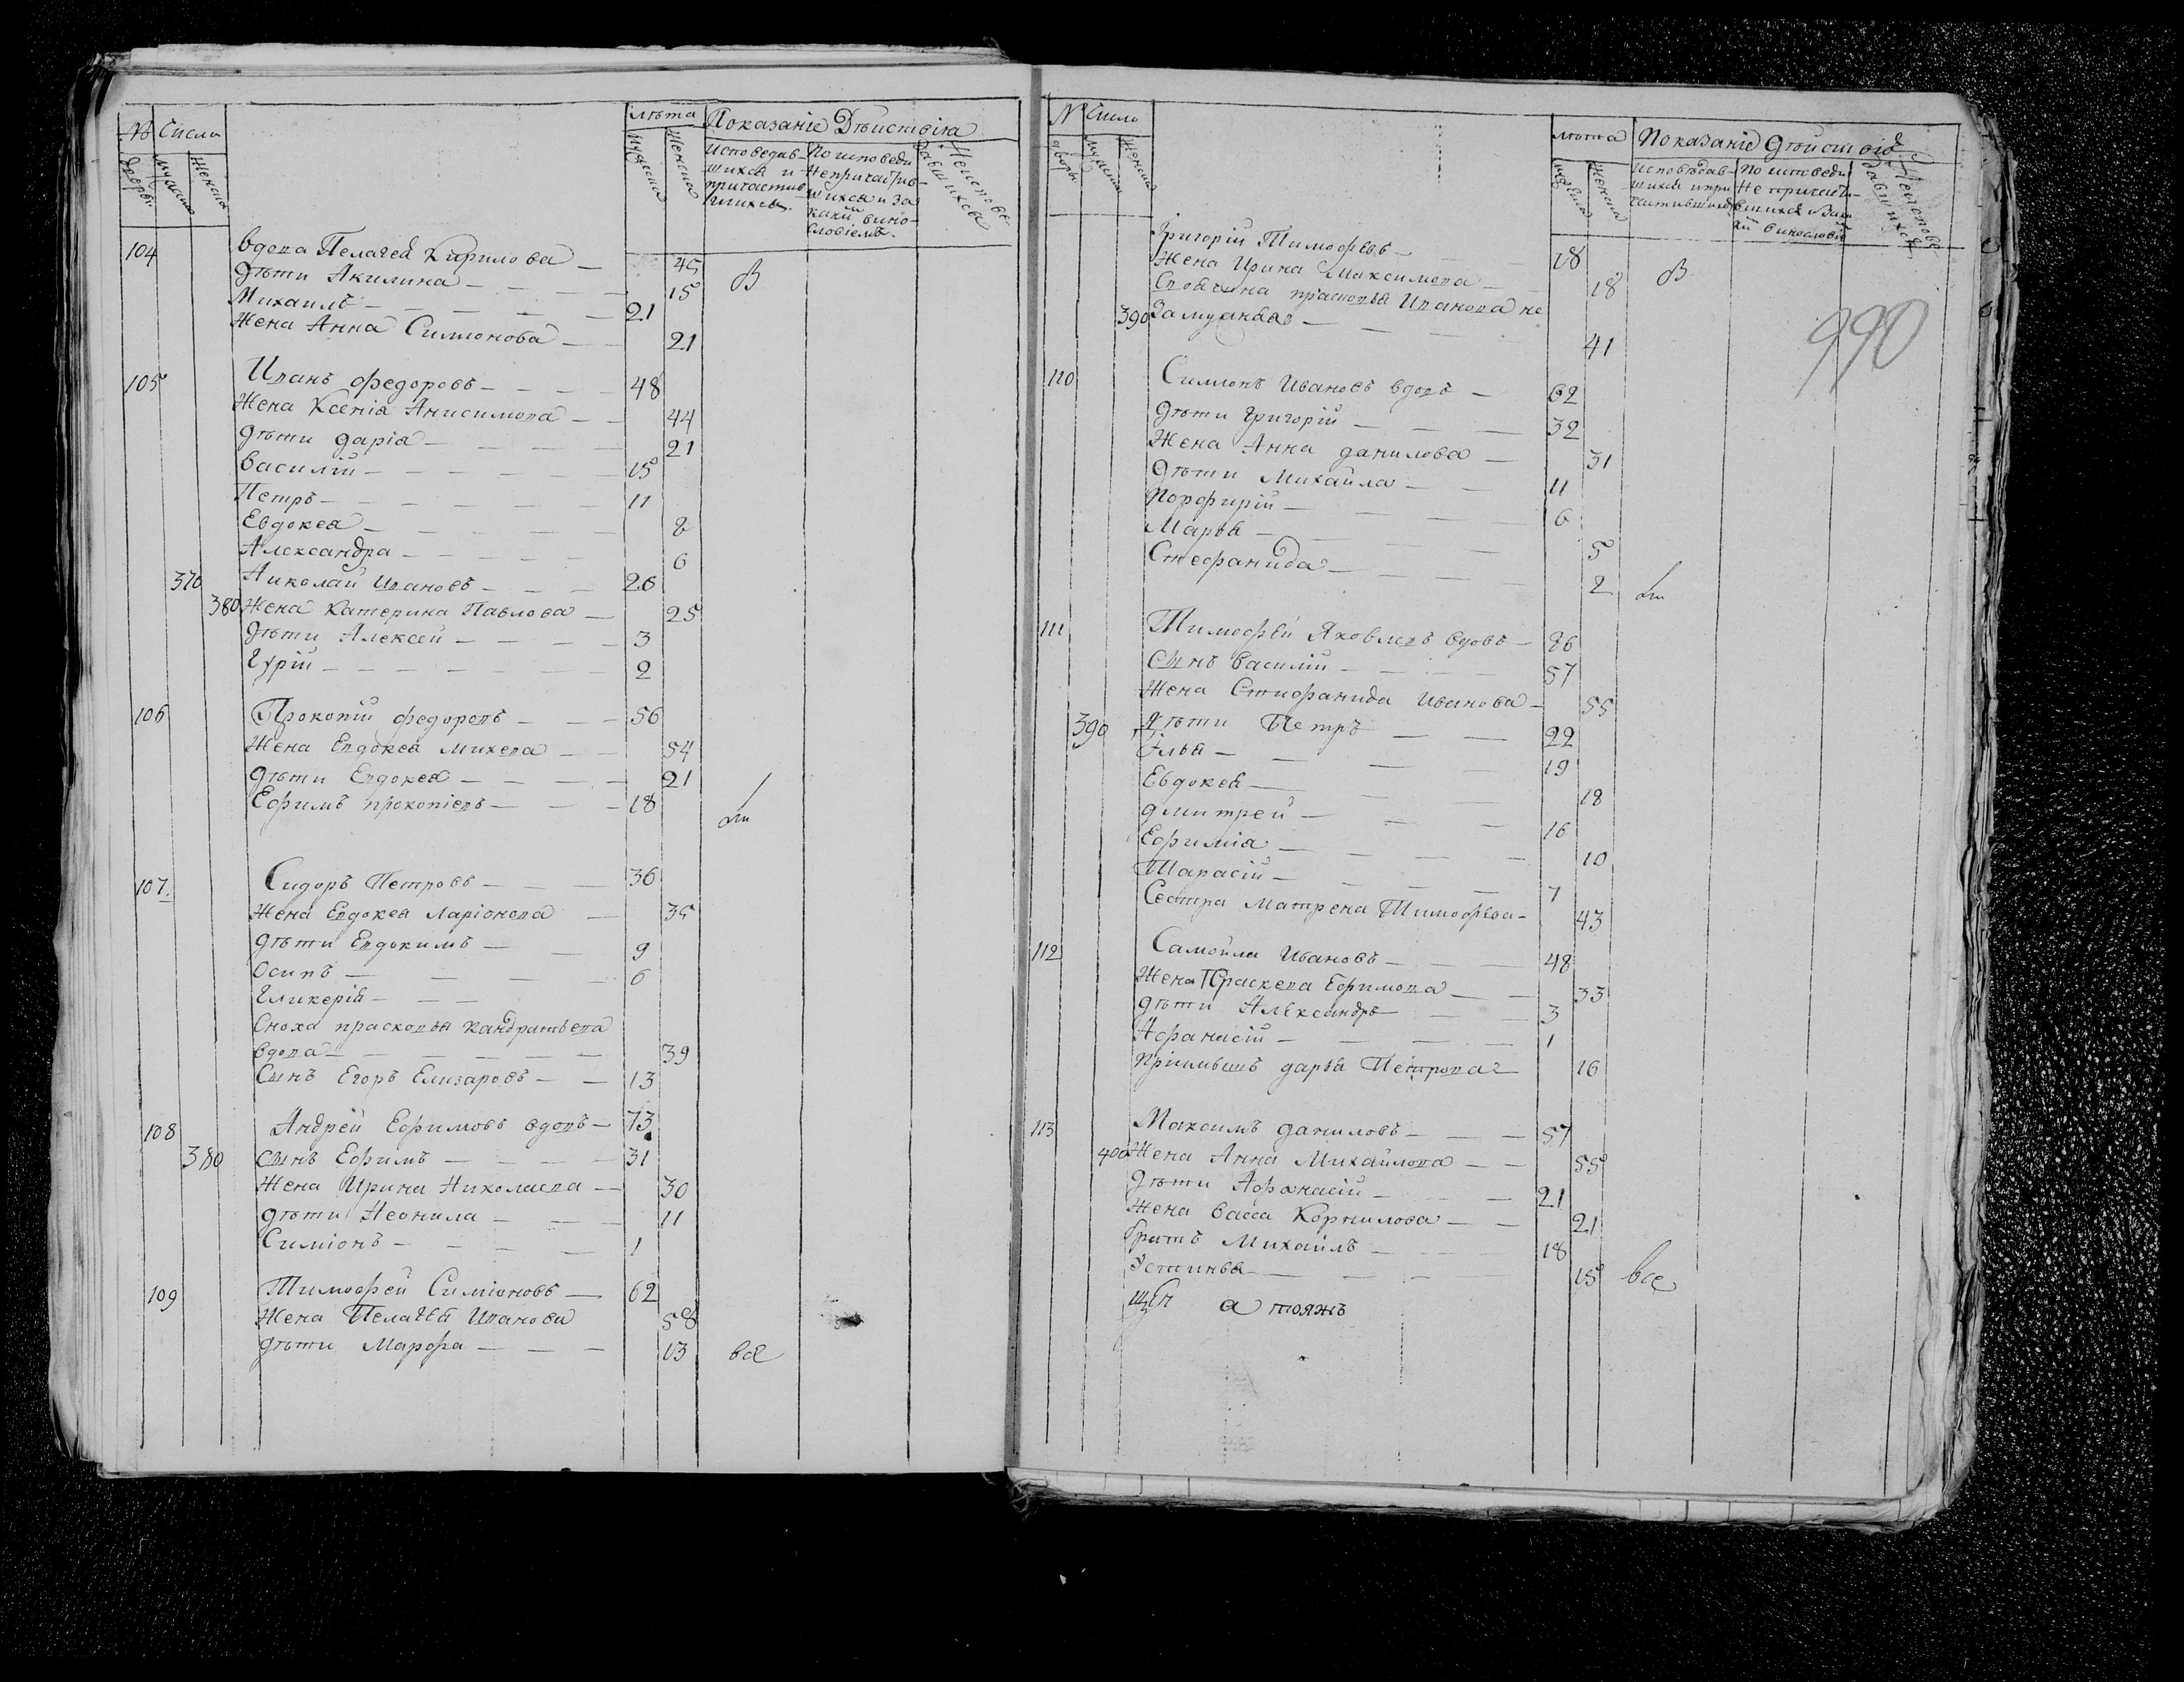 № Числа
лѣта
Показаніе Дѣиствія
дворы.
мужеска
женска
мужеска
женска
Исповедав-
шихся и
причастив
шихся.
По исповеди
Непричастив-
шихся и за
какй вино-
словіемъ.
Неисповѣ
давшихся
104 вдова Пелагея Кирилова — 45 В
дѣти Акилина — 15
Михаилъ — 21
Жена Анна Симионова — 21
105 Иванъ федоровъ — 48
Жена Ксенія Анисимова — 44
дѣти дарія — 21
василій — 15
Петръ — 11
Евдокея — 8
Александра — 6
370 Николай Ивановъ — 26
380 Жена Катерина Павлова — 25
дѣти Алексей — 3
Гурій — 2
106 Прокопій федоровъ — 56
Жена Евдокея Михева — 54
дѣти Евдокея — 21
Ефимъ прокопіевъ — 18
107. Сидоръ Петровъ — 36
Жена Евдокея Ларіонова — 35
дѣти Евдокимъ — 9
Осипъ — 6
Гликерія —
Сноха прасковья Кандратьева
вдова — 39
Сынъ Егоръ Елизаровъ — 13
108 Андрей Ефимовъ вдовъ — 73
380 сынъ Ефимъ — 31
Жена Ирина Николаева — 30
дѣти Неонила — 11
Симіонъ — 1
109 Тимофей Симіоновъ — 62
Жена Пелагея Иванова 58
дѣти Марфа — 13 всѣ
№ Число
лѣта
Показаніе дѣйствія
дворы
мужеска
женска
мужеска
женска
Исповѣдав-
шихся и при
частившихся
По исповеди
Не причасти-
вшихся
винословій
Неисповѣ
давшихся
990
Григорій Тимофѣевъ — 18
Жена Ирина Максимова — 18 В
Своячина прасковья Иванова не
390 Замужняя — 41
110 Симионъ Ивановъ вдовъ — 62
дѣти Григорій — 32
Жена Анна данилова — 31
дѣти Михайла — 11
Порфирій — 6
Марья — 5
Стефанида — 2
111 Тимофѣй Яковлевъ вдовъ — 86
сынъ Василій — 57
Жена Стифанида Иванова — 55
390 дѣти Петръ — 22
Илья — 19
Евдокея — 18
дмитрей — 16
Ефимія — 10
Тарасій — 7
Сестра Матрена Тимофѣева — 43
112 Самойла Ивановъ — 48
Жена Праскева Ефимова — 33
дѣти Александръ — 3
Афанасій — 1
Пріимышъ дарья Петрова — 16
113 Максимъ даниловъ — 57
400 Жена Анна Михайлова — 55
дѣти Афонасій — 21
Жена васса Корнилова — 21
братъ Михайлъ — 18
Устинья — 15 всѣ
а тояжъ